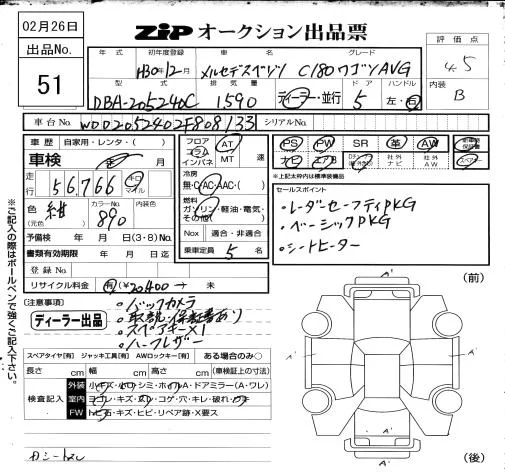 02月26日
ZiP オークション出品票
出品No.
51
評価点
4.5
内装
B
年式 初年度登録 車名 グレード
H30年12月 メルセデスベンツ C180ワゴンAVG
型式 排気量 ドア ハンドル
DBA-205240C 1590 ディーラー・並行 5 左・右
車台No. WDD2052402F808133 シリアルNo.
車歴 自家用・レンタ・( )
車検 年 月
走行 56,766 キロ マイル
色 (元色) 紺 カラーNo. 890 内装色
予備検 年 月 日(3・8)No.
書類有効期限 年 月 日
登録No.
リサイクル料金 有(¥20400 → 未
フロア コラム インパネ
AT
MT 速
冷房
無・C・AC・AAC・( )
燃料
ガソリン・軽油・電気・
その他( )
Nox 適合・非適合
乗車定員 5 名
PS PW SR 革 AW
ナビ エアB 社外ナビ 社外AW
スペアキー
*上記太枠内は標準装備品
セールスポイント
・レーダーセーフティPKG
・ベーシックPKG
・シートヒーター
(注意事項)
ディーラー出品
・バックカメラ
・取説・保証書あり
・スペアキー×1
・ハーフレザー
※ご記入の際はボールペンで強くご記入下さい。
スペアタイヤ[有] ジャッキ工具[有] AWロックキー[有] ある場合のみ○
長さ cm 幅 cm 高さ cm (車検証上の寸法)
検査記入
外装 小キズ・ヒロ・シミ・ホイルA・ドアミラー(A・ワレ)
室内 ヨゴレ・キズ・スレ・コゲ・穴・キレ・破れ・ウキ
FW トビ石・キズ・ヒビ・リペア跡・X要ス
(前)
A'
A'
A'
A'
A'
(後)